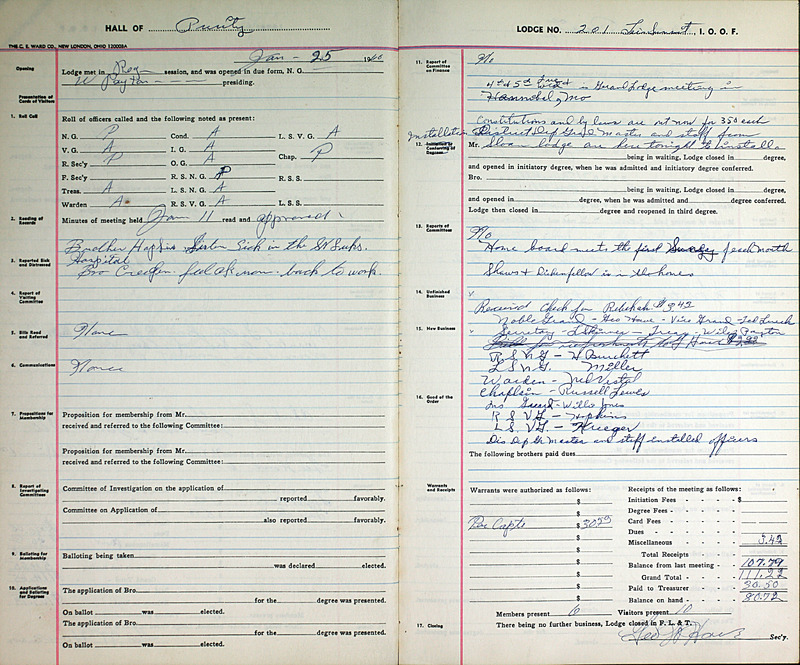 HALL OF Purity
THE C. E. WARD CO., NEW LONDON, OHIO 123008A
Jan - 25 1960
Opening
Lodge met in Reg session, and was opened in due form, N. G.
W Payton presiding.
Presentation of Cards of Visitors
1. Roll Call
Roll of officers called and the following noted as present:
N. G. P Cond. A L. S. V. G. A
V. G. A I. G. A Chap. P
R. Sec'y P O. G. A
F. Sec'y R. S. N. G. P R. S. S.
Treas. A L. S. N. G. A
Warden A R. S. V. G. A L. S. S.
2. Reading of Records
Minutes of meeting held Jan 11 read and approved
3. Reported Sick and Distressed
Brother Hopkins Sick in the
Hospital
Bro back to work.
4. Report of Visiting Committee
5. Bills Read and Referred
None
6. Communications
None
7. Propositions for Membership
Proposition for membership from Mr.
received and referred to the following Committee:
Proposition for membership from Mr.
received and referred to the following Committee:
8. Report of Investigating Committees
Committee of Investigation on the application of
reported favorably.
Committee on Application of
also reported favorably.
9. Balloting for Membership
Balloting being taken
was declared elected.
10. Applications and Balloting for Degrees
The application of Bro.
for the degree was presented.
On ballot was elected.
The application of Bro.
for the degree was presented.
On ballot was elected.
LODGE NO. 201, I. O. O. F.
11. Report of Committee on Finance
No
4th & 5th is Grand Lodge meeting in
Hannibal, Mo
Constitutions and by laws are out now for 350 each
Installation District Dep Grand Master and staff from
12. Initiation or Conferring of Degrees
Mr. Sloan lodge are here tonight to install
being in waiting, Lodge closed in degree,
and opened in initiatory degree, when he was admitted and initiatory degree conferred.
Bro.
being in waiting, Lodge closed in degree,
and opened in degree, when he was admitted and degree conferred.
Lodge then closed in degree and reopened in third degree.
13. Reports of Committees
No
Home board meets the first Sunday of each month
Shaws & is in the homes
14. Unfinished Business
Received check for Rebekah $3.42
Noble Grand - Geo Howe - Vice Grand - Ted Lynch
15. New Business
Secretary - Treas - Wiley Payton
for refreshments to Howe
R S N G - H Burchett
L S N G. Miller
Warden - Mel Vestal
16. Good of the Order
Chaplain - Russell Lewis
Ins Guard - Willis Jones
R S VG - Hopkins
L S. VG - Krueger
Dis Dep Gr Master and staff installed officers
The following brothers paid dues
Warrants and Receipts
Warrants were authorized as follows:
$
$
Per Capta $ 30.50
$
$
$
$
$
$
Receipts of the meeting as follows:
Initiation Fees $
Degree Fees
Card Fees
Dues
Miscellaneous 3.42
Total Receipts
Balance from last meeting 107.79
Grand Total 111.22
Paid to Treasurer 30.50
Balance on hand 80.72
Members present 6 Visitors present 10
17. Closing
There being no further business, Lodge closed in F. L. & T.
Geo W Howe Sec'y.